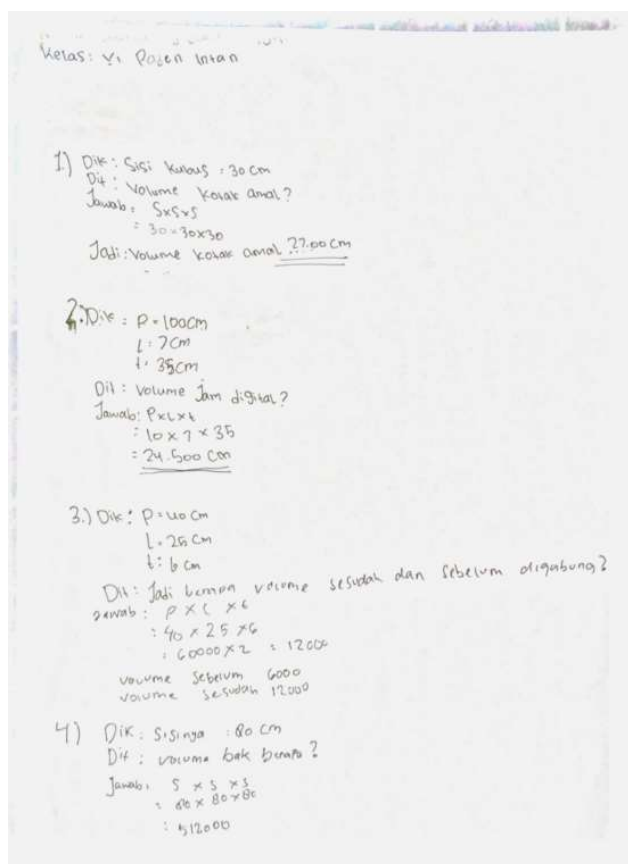 Kelas: VI Paten Intan
1.) Dik : Sisi Kubus : 30 cm
Dit : Volume kotak amal?
Jawab : SxSxS
: 30 x 30 x 30
Jadi : Volume kotak amal 27.00 cm
2.) Dik : P = 100cm
L : 7 cm
t : 35 cm
Dit : Volume Jam digital?
Jawab : PxLxt
: 10 x 7 x 35
: 24.500 cm
3.) Dik : P = 40 cm
L = 25 cm
t : 6 cm
Dit : Jadi volume sesudah dan sebelum digabung?
Jawab : P x L x t
: 40 x 25 x 6
: 60000 x 2 : 12000
volume sebelum 6000
volume sesudah 12000
4) Dik : Sisinya : 80 cm
Dit : volume bak berapa?
Jawab : S x S x S
: 80 x 80 x 80
: 512000